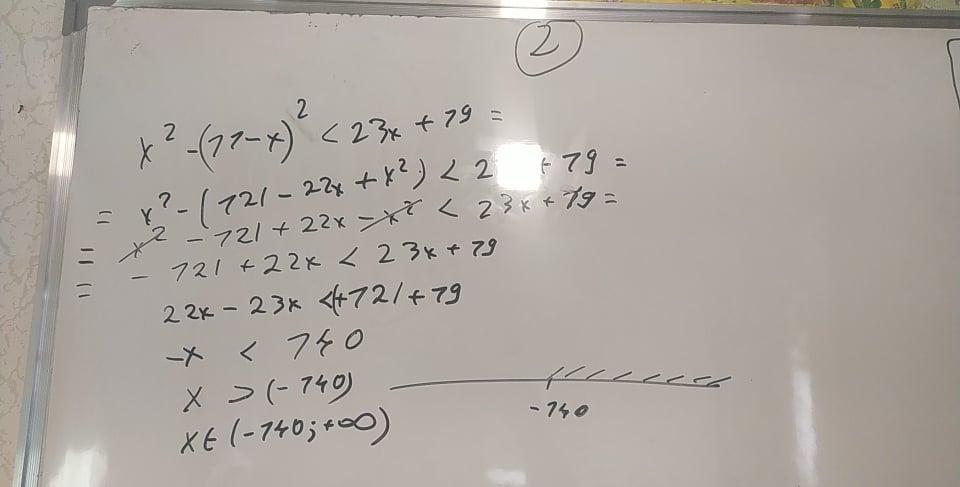 2
x² - (11 - x)² < 23x + 19 =
= x² - (121 - 22x + x²) < 2 + 19 =
= x² - 121 + 22x - x² < 23x + 19 =
= - 121 + 22x < 23x + 19
22x - 23x < +121 + 19
-x < 140
x > (-140)
-140
x ∈ (-140; +∞)